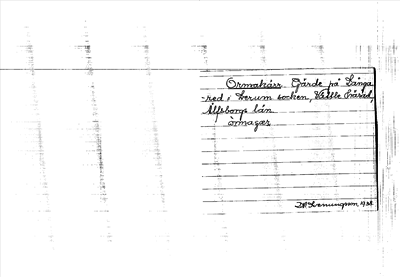 Ormakärr. Gärde på Långa-
red i Lerum socken, Vättle härad,
Älfsborgs län
òrmaçær
1934